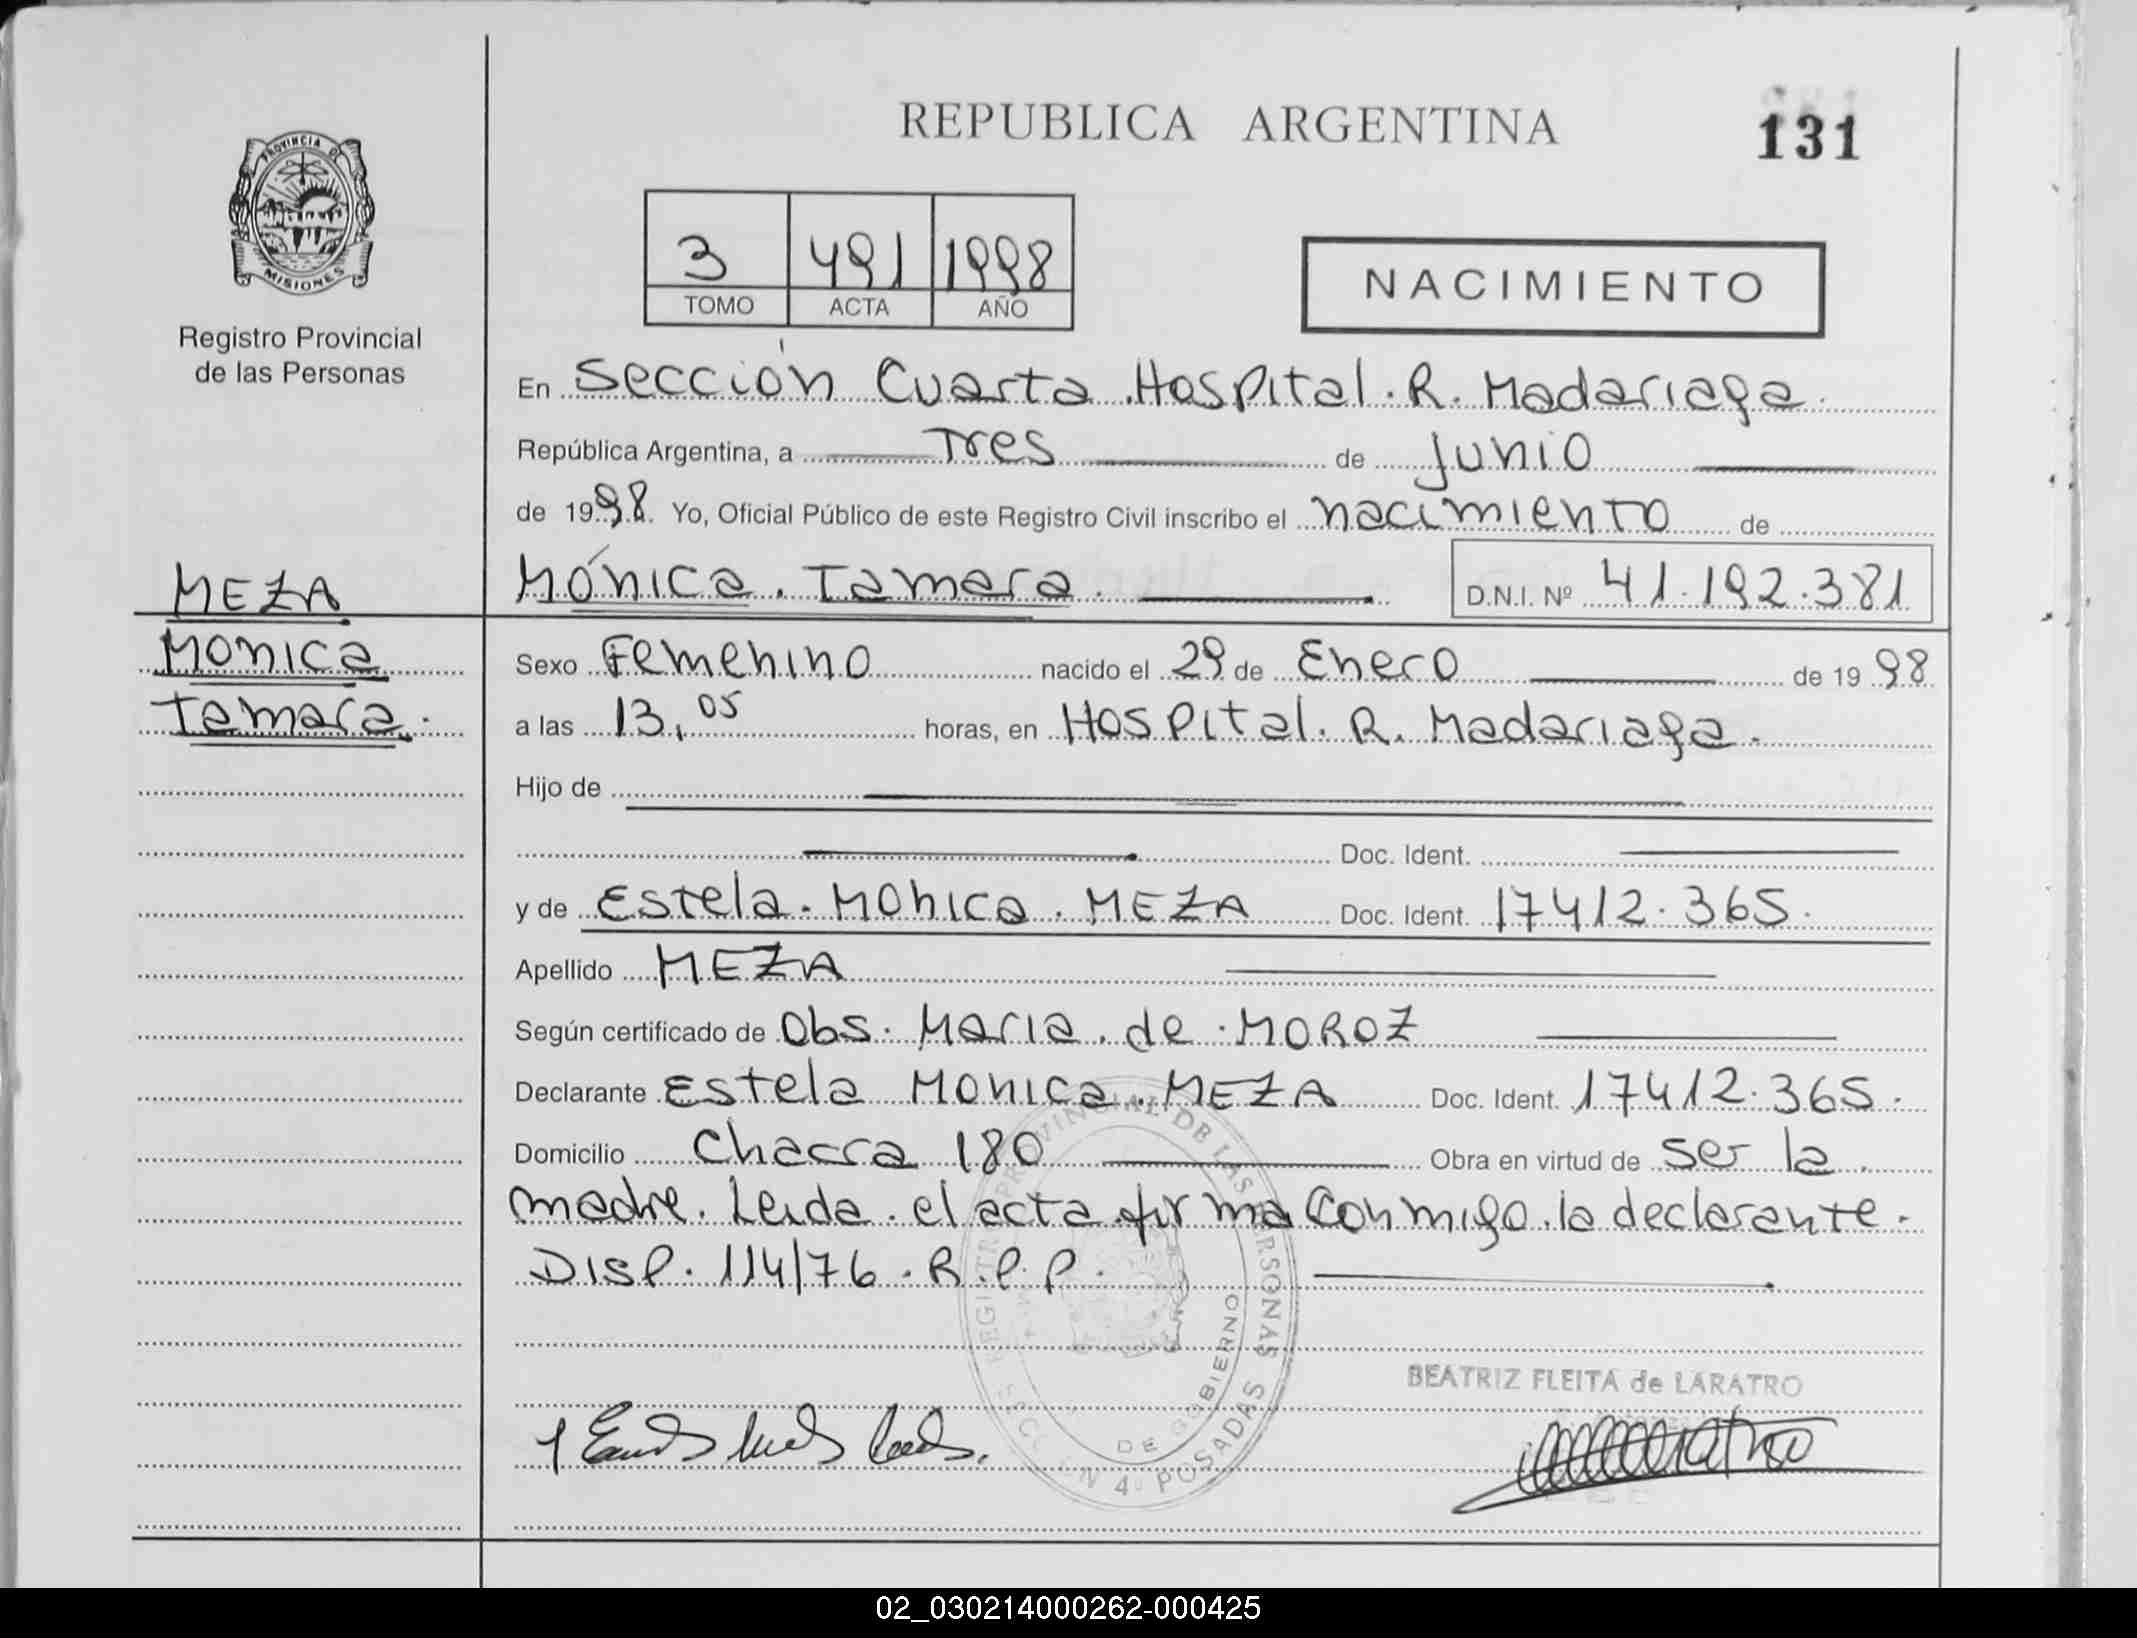 REPUBLICA ARGENTINA
131
PROVINCIA DE
MISIONES
Registro Provincial
de las Personas
3 491 1998
TOMO ACTA AÑO
NACIMIENTO
En Sección Cuarta Hospital. R. Madariaga.
República Argentina, a Tres de Junio
de 1998. Yo, Oficial Público de este Registro Civil inscribo el nacimiento de
Mónica. Tamara. D.N.I. Nº 41.192.381
MEZA
Monica
Tamara.
Sexo Femenino nacido el 29 de Enero de 1998
a las 13,05 horas, en Hospital. R. Madariaga.
Hijo de
Doc. Ident.
y de Estela. Monica. MEZA Doc. Ident. 17412.365.
Apellido MEZA
Según certificado de Obs. Maria. de. MOROZ
Declarante Estela Monica. MEZA Doc. Ident. 17412.365.
Domicilio Chacra 180 Obra en virtud de ser la
madre. Leida. el acta firma conmigo. la declarante.
Disp. 114/76. R.P.P.
REGISTRO PROVINCIAL DE LAS PERSONAS
DE GOBIERNO
4º POSADAS
BEATRIZ FLEITA de LARATRO
02_030214000262-000425